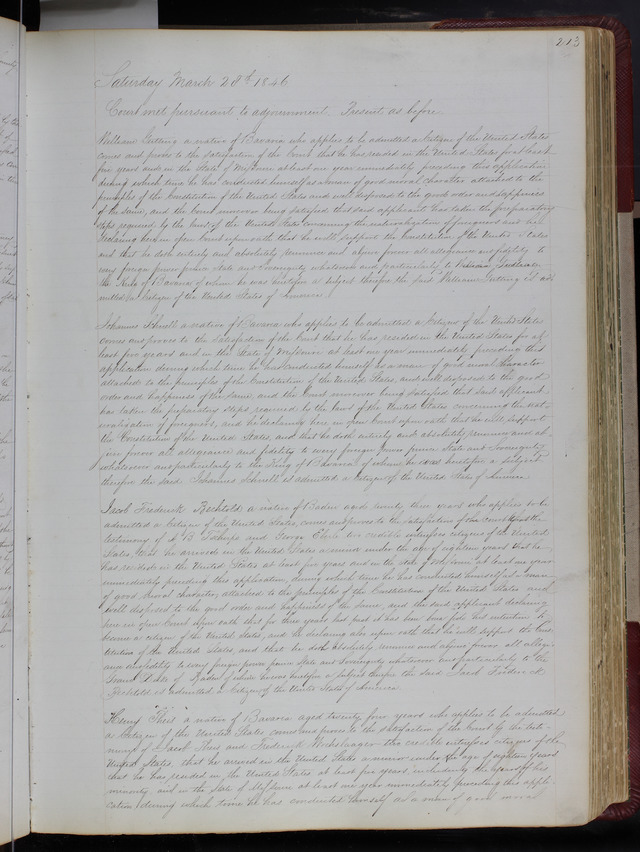 213
Saturday March 28th 1846
Court met pursuant to adjournment. Present as before.
William Gutting a native of Bavaria who applies to be admitted a Citizen of the United States
comes and proves to the satisfaction of the Court that he has resided in the United States for at least
five years and in the State of Missouri at least one year immediately preceding this application
during which time he has conducted himself as a man of good moral character attached to the
principles of the Constitution of the United States and well disposed to the good order and happiness
of the same, and the Court moreover being satisfied that said applicant has taken the preparatory
steps required by the laws of the United States concerning the naturalization of foreigners and he
declaring here in open Court upon oath that he will support the Constitution of the United States
and that he doth entirely and absolutely renounce and abjure forever all allegiance and fidelity to
every foreign power prince state and Sovereignty whatsoever and particularly to
the King of Bavaria of whom he was heretofore a subject therefore the said William Gutting is ad
mitted a Citizen of the United States of America
Johannes Schnell a native of Bavaria who applies to be admitted a Citizen of the United States
comes and proves to the satisfaction of the Court that he has resided in the United States for at
least five years and in the State of Missouri at least one year immediately preceding this
application during which time he has conducted himself as a man of good moral character
attached to the principles of the Constitution of the United States, and well disposed to the good
order and happiness of the same, and the Court moreover being satisfied that said applicant
has taken the preparatory steps required by the laws of the United States concerning the nat
uralization of foreigners, and he declaring here in open Court upon oath that he will support
the Constitution of the United States, and that he doth entirely and absolutely renounce and ab
jure forever all allegiance and fidelity to every foreign power prince State and Sovereignty
whatsoever and particularly to the King of Bavaria of whom he was heretofore a subject
therefore the said Johannes Schnell is admitted a Citizen of the United States of America
Jacob Frederick Bechtold a native of Baden aged twenty three years who applies to be
admitted a Citizen of the United States, comes and proves to the satisfaction of the Court by the
testimony of and George two credible witnesses citizens of the United
States that he arrived in the United States a minor under the age of eighteen years that he
has resided in the United States at least five years and in the State of Missouri at least one year
immediately preceding this application, during which time he has conducted himself as a man
of good moral character, attached to the principles of the Constitution of the United States and
well disposed to the good order and happiness of the same, and the said applicant declaring
here in open Court upon oath that for three years last past it has been bona fide his intention to
become a citizen of the United States, and he declaring also upon oath that he will support the Cons
titution of the United States and that he doth absolutely renounce and abjure forever all allegi
ance and fidelity to every foreign power prince State and Sovereignty whatsoever and particularly to the
Grand Duke of Baden of whom he was heretofore a subject therefore the said Jacob Frederick
Bechtold is admitted a Citizen of the United States of America
Henry Theis a native of Bavaria aged twenty four years who applies to be admitted
a Citizen of the United States comes and proves to the satisfaction of the Court by the testi
mony of Jacob Theis and Frederick two credible witnesses citizens of the
United States, that he arrived in the United States a minor under the age of eighteen years
that he has resided in the United States at least five years including the years of his
minority and in the State of Missouri at least one year immediately preceding this appli
cation during which time he has conducted himself as a man of good moral